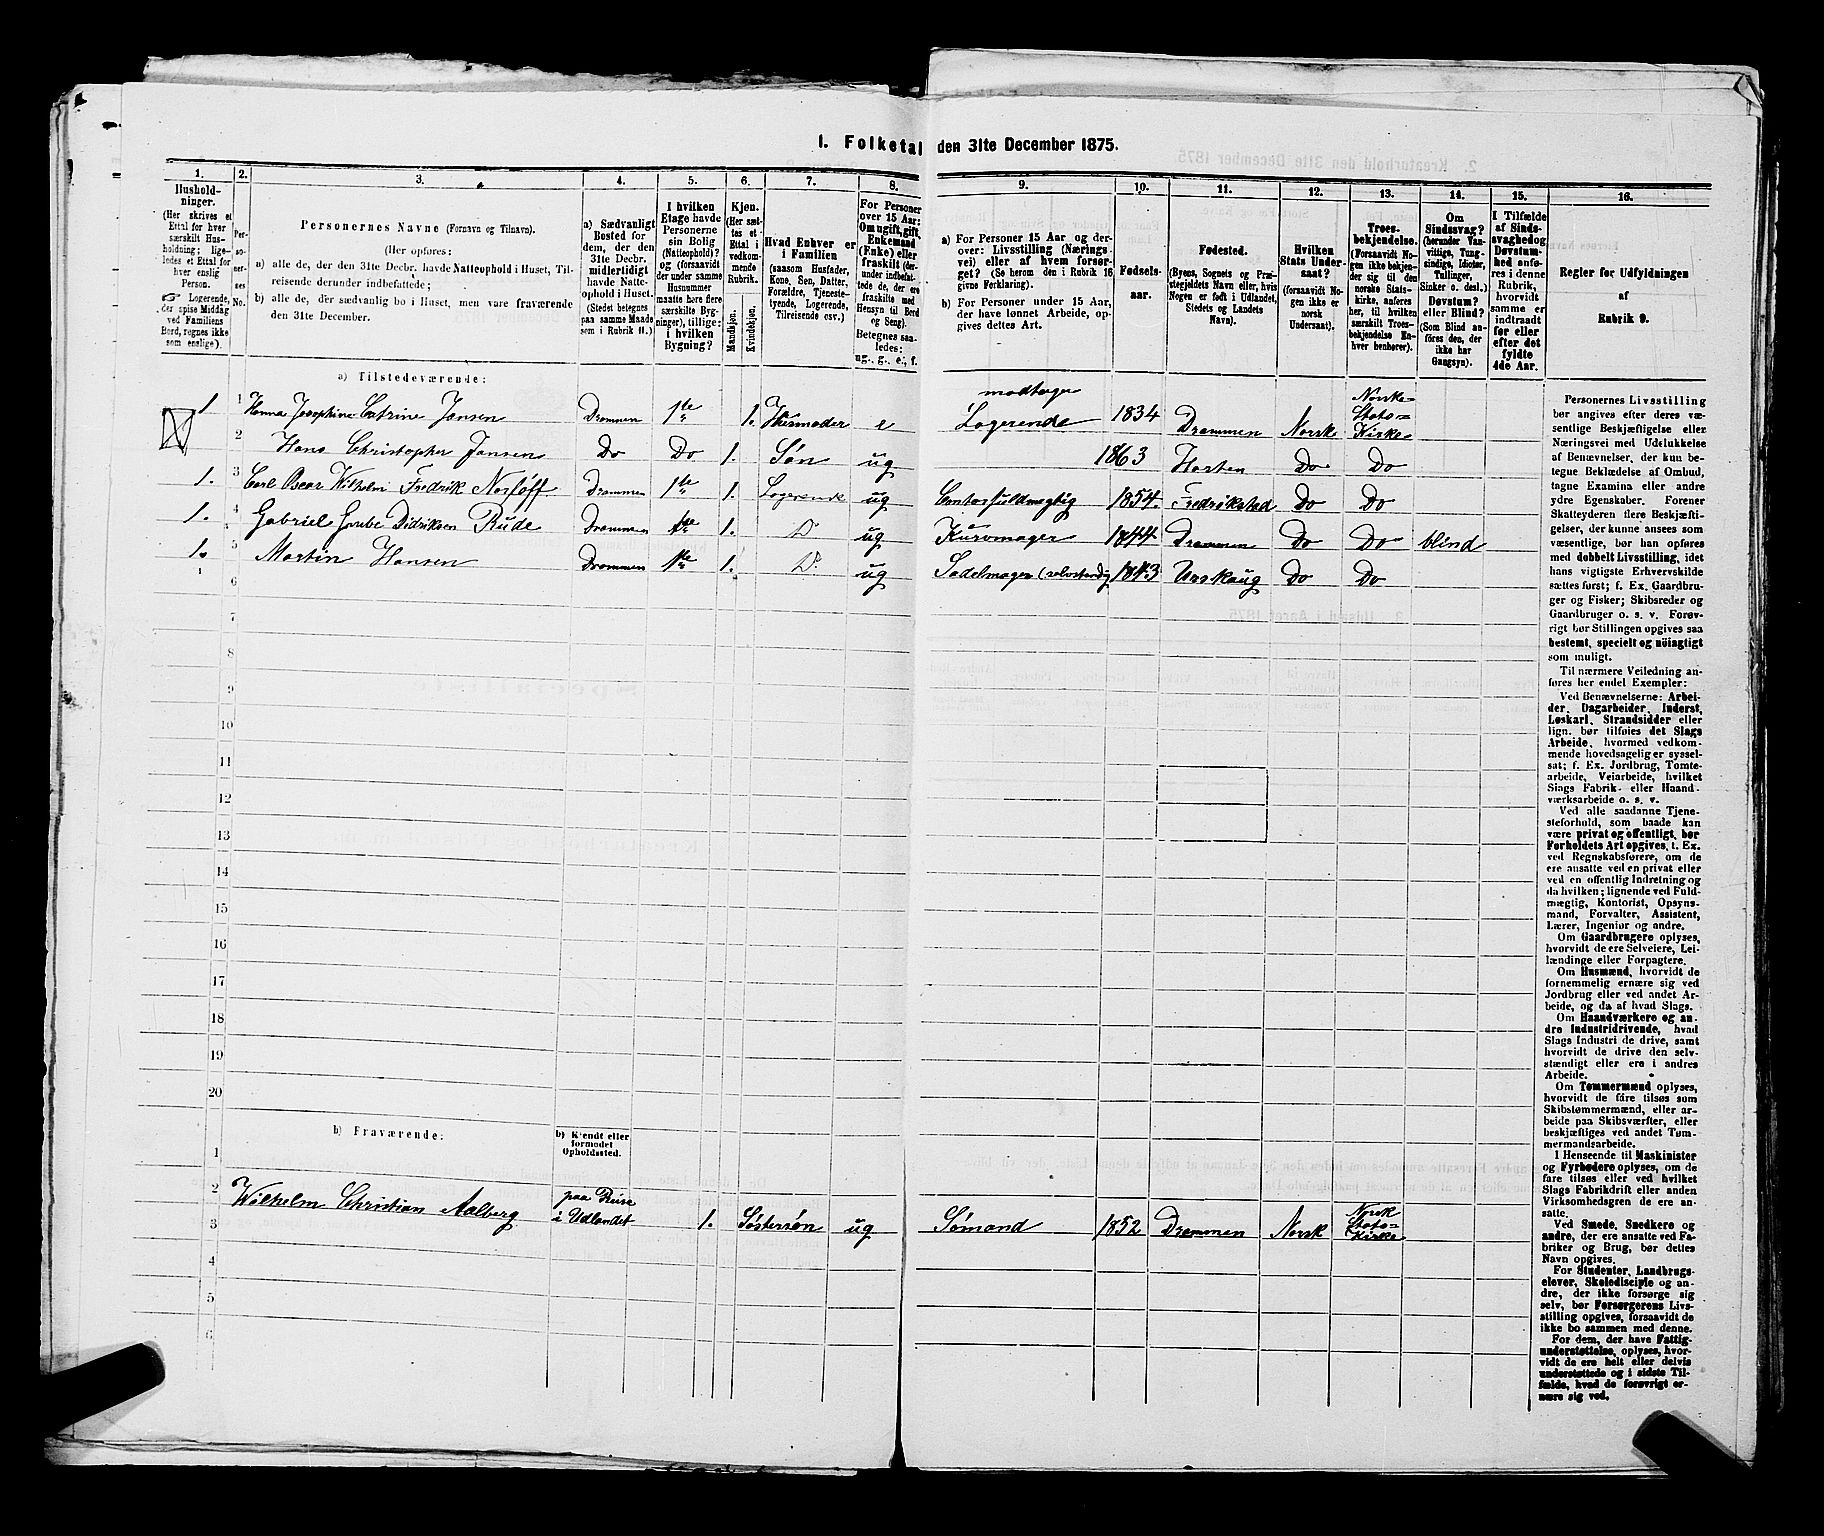 1. Folketal den 31te December 1875.
1.
2.
3.
4.
5.
6.
7.
8.
9.
10.
11.
12.
13.
14.
15.
16.
Husholdninger.
(Her skrives et Ettal for hver særskilt Husholdning; ligeledes et Ettal for hver enslig Person.
☞ Logerende, der spise Middag ved Familiens Bord, regnes ikke som enslige).
Personernes No.
Personernes Navne (Fornavn og Tilnavn).
(Her opføres:
a) alle de, der den 31te Decbr. havde Natteophold i Huset, Tilreisende derunder indbefattede;
b) alle de, der sædvanlig bo i Huset, men vare fraværende den 31te December.
a) Sædvanligt Bosted for dem, der den 31te Decbr. midlertidigt havde Natteophold i Huset.
(Stedet betegnes paa samme Maade som i Rubrik 11.)
I hvilken Etage havde Personerne sin Bolig (Natteophold)? og (forsaavidt der under samme Husnummer maatte høre flere særskilte Bygninger), tillige: i hvilken Bygning?
Kjøn.
(Her sættes et Ettal i vedkommende Rubrik.
Mandkjøn.
Kvindekjøn.
Hvad Enhver er i Familien
(saasom Husfader, Kone, Søn, Datter, Forældre, Tjenestetyende, Logerende, Tilreisende osv.)
For Personer over 15 Aar: Om ugift, gift, Enkemand (Enke) eller fraskilt (derunder indbefattede de, der ere fraskilte med Hensyn til Bord og Seng).
Betegnes saaledes: ug., g., e., f.
a) For Personer 15 Aar og derover: Livsstilling (Næringsvei) eller af hvem forsørget? (Se herom den i Rubrik 16 givne Forklaring).
b) For Personer under 15 Aar, der have lønnet Arbeide, opgives dettes Art.
Fødselsaar.
Fødested.
(Byens, Sognets og Præstegjeldets Navn eller, hvis Nogen er født i Udlandet, Stedets og Landets Navn).
Hvilken Stats Undersaat?
(forsaavidt Nogen ikke er norsk Undersaat).
Troesbekjendelse.
(Forsaavidt Nogen ikke bekjender sig til den norske Statskirke, anføres her, til hvilken særskilt Troesbekjendelse Enhver henhører).
Om Sindssvag? (herunder Vanvittige, Tungsindige, Idioter, Tullinger, Sinker o. desl.) Døvstum? eller Blind? (Som Blind anføres den, der ikke har Gangsyn).
I Tilfælde af Sindssvaghed og Døvstumhed anføres i denne Rubrik, hvorvidt samme er indtraadt før eller efter det fyldte 4de Aar.
Regler for Udfyldningen af Rubrik 9.
a) Tilstedeværende:
1 1 Hanna Josephine Catrine Jansen Drammen 1te 1. Huusmoder e modtager Logerende 1834 Drammen Norsk Norske Stats=Kirke
2 Hans Christopher Jansen Do Do 1. Søn ug 1863 Horten Do Do
1. 3 Carl Oscar Wilhelm Fredrik Norløff Drammen 1te 1. Logerende ug Contorfuldmægtig 1854. Fredrikstad Do Do
1. 4 Gabriel Grube Didriksen Rude Drammen 1te 1. D ug Kurvmager 1844 Drammen Do Do blind
1. 5 Martin Hansen Drammen 1te 1. D. ug Sadelmager (selvstændig 1843 Urskaug Do Do
6
7
8
9
10
11
12
13
14
15
16
17
18
19
20
b) Fraværende:
b) Kjendt eller formodet Opholdssted.
1
2
3 Wilhelm Christian Aalberg paa Reise i Udlandet 1. Søstersøn ug Sømand 1852 Drammen Norsk Norsk Stats=Kirke
4
5
6
Personernes Livsstilling
bør angives efter deres væ-
sentlige Beskjæftigelse eller
Næringsvei med Udelukkelse
af Benævnelser, der kun be-
tegne Beklædelse af Ombud,
tagne Examina eller andre
ydre Egenskaber. Forener
Skatteyderen flere Beskjæfti-
gelser, der kunne ansees som
væsentlige, bør han opføres
med dobbelt Livsstilling, idet
hans vigtigste Erhvervskilde
sættes først; f. Ex. Gaardbru-
ger og Fisker; Skibsreder og
Gaardbruger o. s. v. Forøv-
rigt bør Stillingen opgives saa
bestemt, specielt og nøiagtigt
som muligt.
Til nærmere Veiledning an-
føres her endel Exempler:
Ved Benævnelserne: Arbei-
der, Dagarbeider, Inderst,
Løskarl, Strandsidder eller
lign. bør tilføies det Slags
Arbeide, hvormed vedkom-
mende hovedsagelig er syssel-
sat; f. Ex. Jordbrug, Tomte-
arbeide, Veiarbeide, hvilket
Slags Fabrik- eller Haand-
værksarbeide o. s. v.
Ved alle saadanne Tjene-
steforhold, som baade kan
være privat og offentligt, bør
Forholdets Art opgives, f. Ex.
ved Regnskabsførere, om de
ere ansatte ved en privat eller
ved en offentlig Indretning og
da hvilken; lignende ved Fuld-
mægtig, Kontorist, Opsyns-
mand, Forvalter, Assistent,
Lærer, Ingeniør og andre.
Om Gaardbrugere oplyses,
hvorvidt de ere Selveiere, Lei-
lændinge eller Forpagtere.
Om Husmænd, hvorvidt de
fornemmelig ernære sig ved
Jordbrug eller ved andet Ar-
beide, og da af hvad Slags.
Om Haandværkere og an-
dre Industridrivende, hvad
Slags Industri de drive, samt
hvorvidt de drive den selv-
stændigt eller ere i andres
Arbeide.
Om Tømmermænd oplyses,
hvorvidt de fare tilsøs som
Skibstømmermænd, eller ar-
beide paa Skibsværfter, eller
beskjæftiges ved andet Tøm-
mermandsarbeide.
I Henseende til Maskinister
og Fyrbødere oplyses, om de
fare tilsøs eller ved hvilket
Slags Fabrikdrift eller anden
Virksomhedsgren de ere an-
satte.
Ved Smede, Snedkere og
andre, der ere ansatte ved Fa-
briker og Brug, bør dettes
Navn opgives.
For Studenter, Landbrugs-
elever, Skoledisciple og an-
dre, der ikke forsørge sig
selv, bør Forsørgerens Livs-
stilling opgives, forsaavidt de
ikke bo sammen med denne.
For dem, der have Fattig-
understøttelse, oplyses, hvor-
vidt de ere helt eller delvis
understøttede og i sidste Til-
fælde, hvad de forøvrigt er-
nære sig ved.